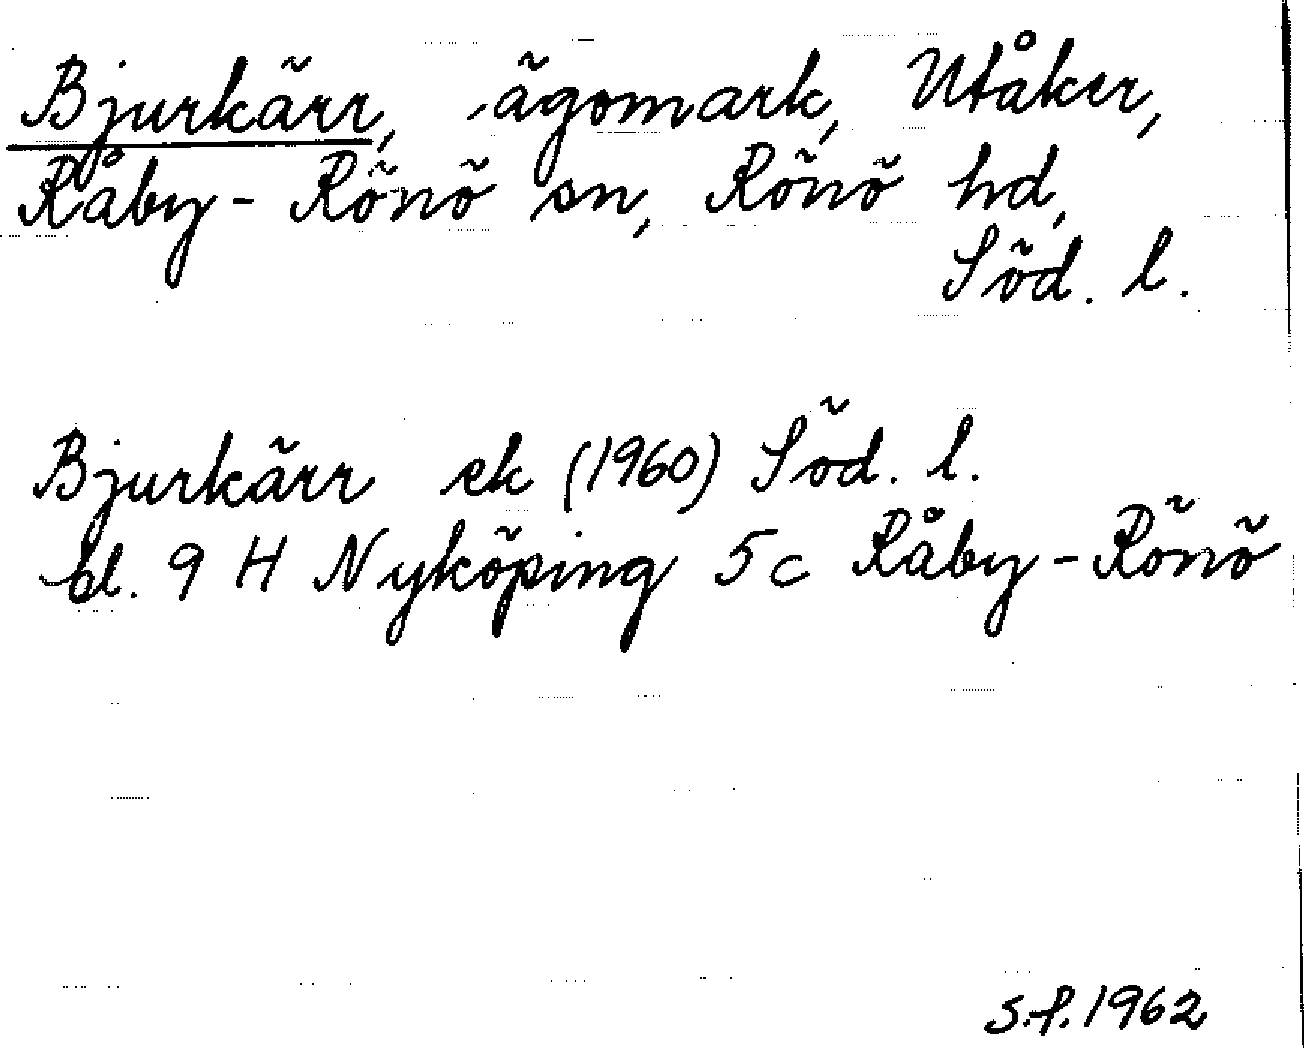 Bjurkärr, ägomark, Utåker,
Råby-Rönö sn, Rönö hd,
Söd. l.
Bjurkärr ek (1960) Söd. l.
bl. 9 H Nyköping 5c Råby-Rönö
S.f. 1962